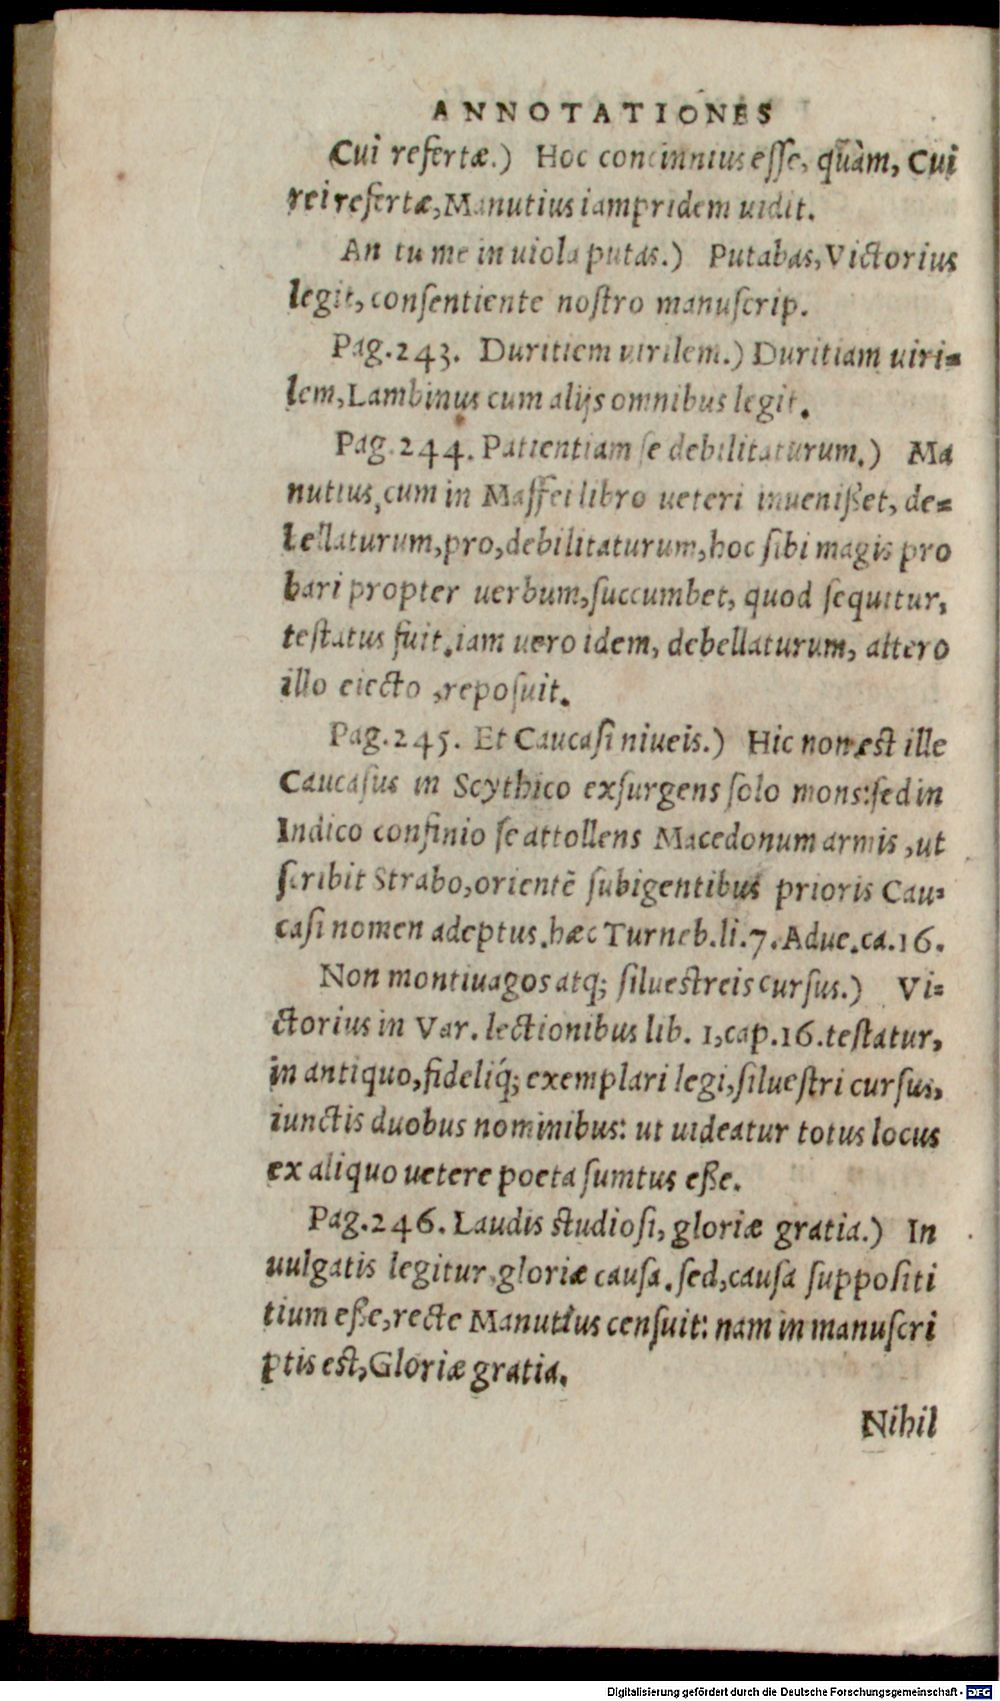 ANNOTATIONES
Cui refertæ.) Hoc concinnius esse, quàm, Cui
rei refertæ, Manutius iampridem uidit.
An tu me in uiola putas.) Putabas, Victorius
legit, consentiente nostro manuscrip.
Pag.243. Duritiem uirilem.) Duritiam uiri=
lem, Lambinus cum alijs omnibus legit.
Pag.244. Patientiam se debilitaturum.) Ma
nutius, cum in Maffei libro ueteri inuenißet, de=
bellaturum, pro, debilitaturum, hoc sibi magis pro
bari propter uerbum, succumbet, quod sequitur,
testatus fuit. iam uero idem, debellaturum, altero
illo eiecto, reposuit.
Pag.245. Et Caucasi niueis.) Hic non est ille
Caucasus in Scythico exsurgens solo mons: sed in
Indico confinio se attollens Macedonum armis, ut
scribit Strabo, orientē subigentibus prioris Cau=
casi nomen adeptus. hæc Turneb.li.7. Adue.ca.16.
Non montiuagos atq; siluestreis cursus.) Vi=
ctorius in Var. lectionibus lib. 1, cap.16. testatur,
in antiquo, fideliq́; exemplari legi, siluestri cursus,
iunctis duobus nominibus: ut uideatur totus locus
ex aliquo uetere poeta sumtus eße.
Pag.246. Laudis studiosi, gloriæ gratia.) In
uulgatis legitur, gloriæ causa. sed, causa supposititi
tium eße, recte Manutius censuit: nam in manuscri
ptis est, Gloriæ gratia.
Nihil
Digitalisierung gefördert durch die Deutsche Forschungsgemeinschaft - DFG